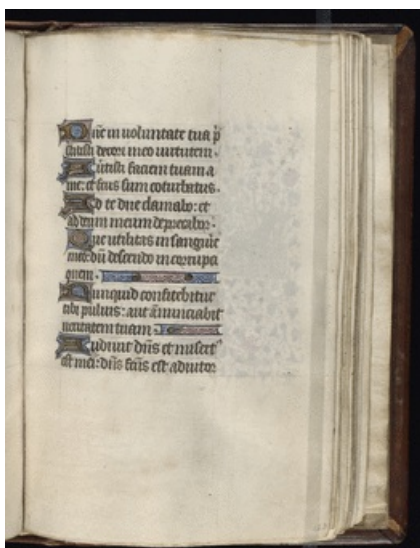 Dñe in voluntate tua p̄
stitisti decori meo virtutem.
Avertisti faciem tuam a
me: et factus sum coturbatus.
Ad te dñe clamabo: et
ad deum meum deprecabor.
Que utilitas in sanguīe
meo: dū descendo in corrupti
onem.
Nunquid confitebitur
tibi pulvis: aut ānunciabit
veritatem tuam.
Audivit dñs et misert᷒
est mei: dñs fcūs est adiutor